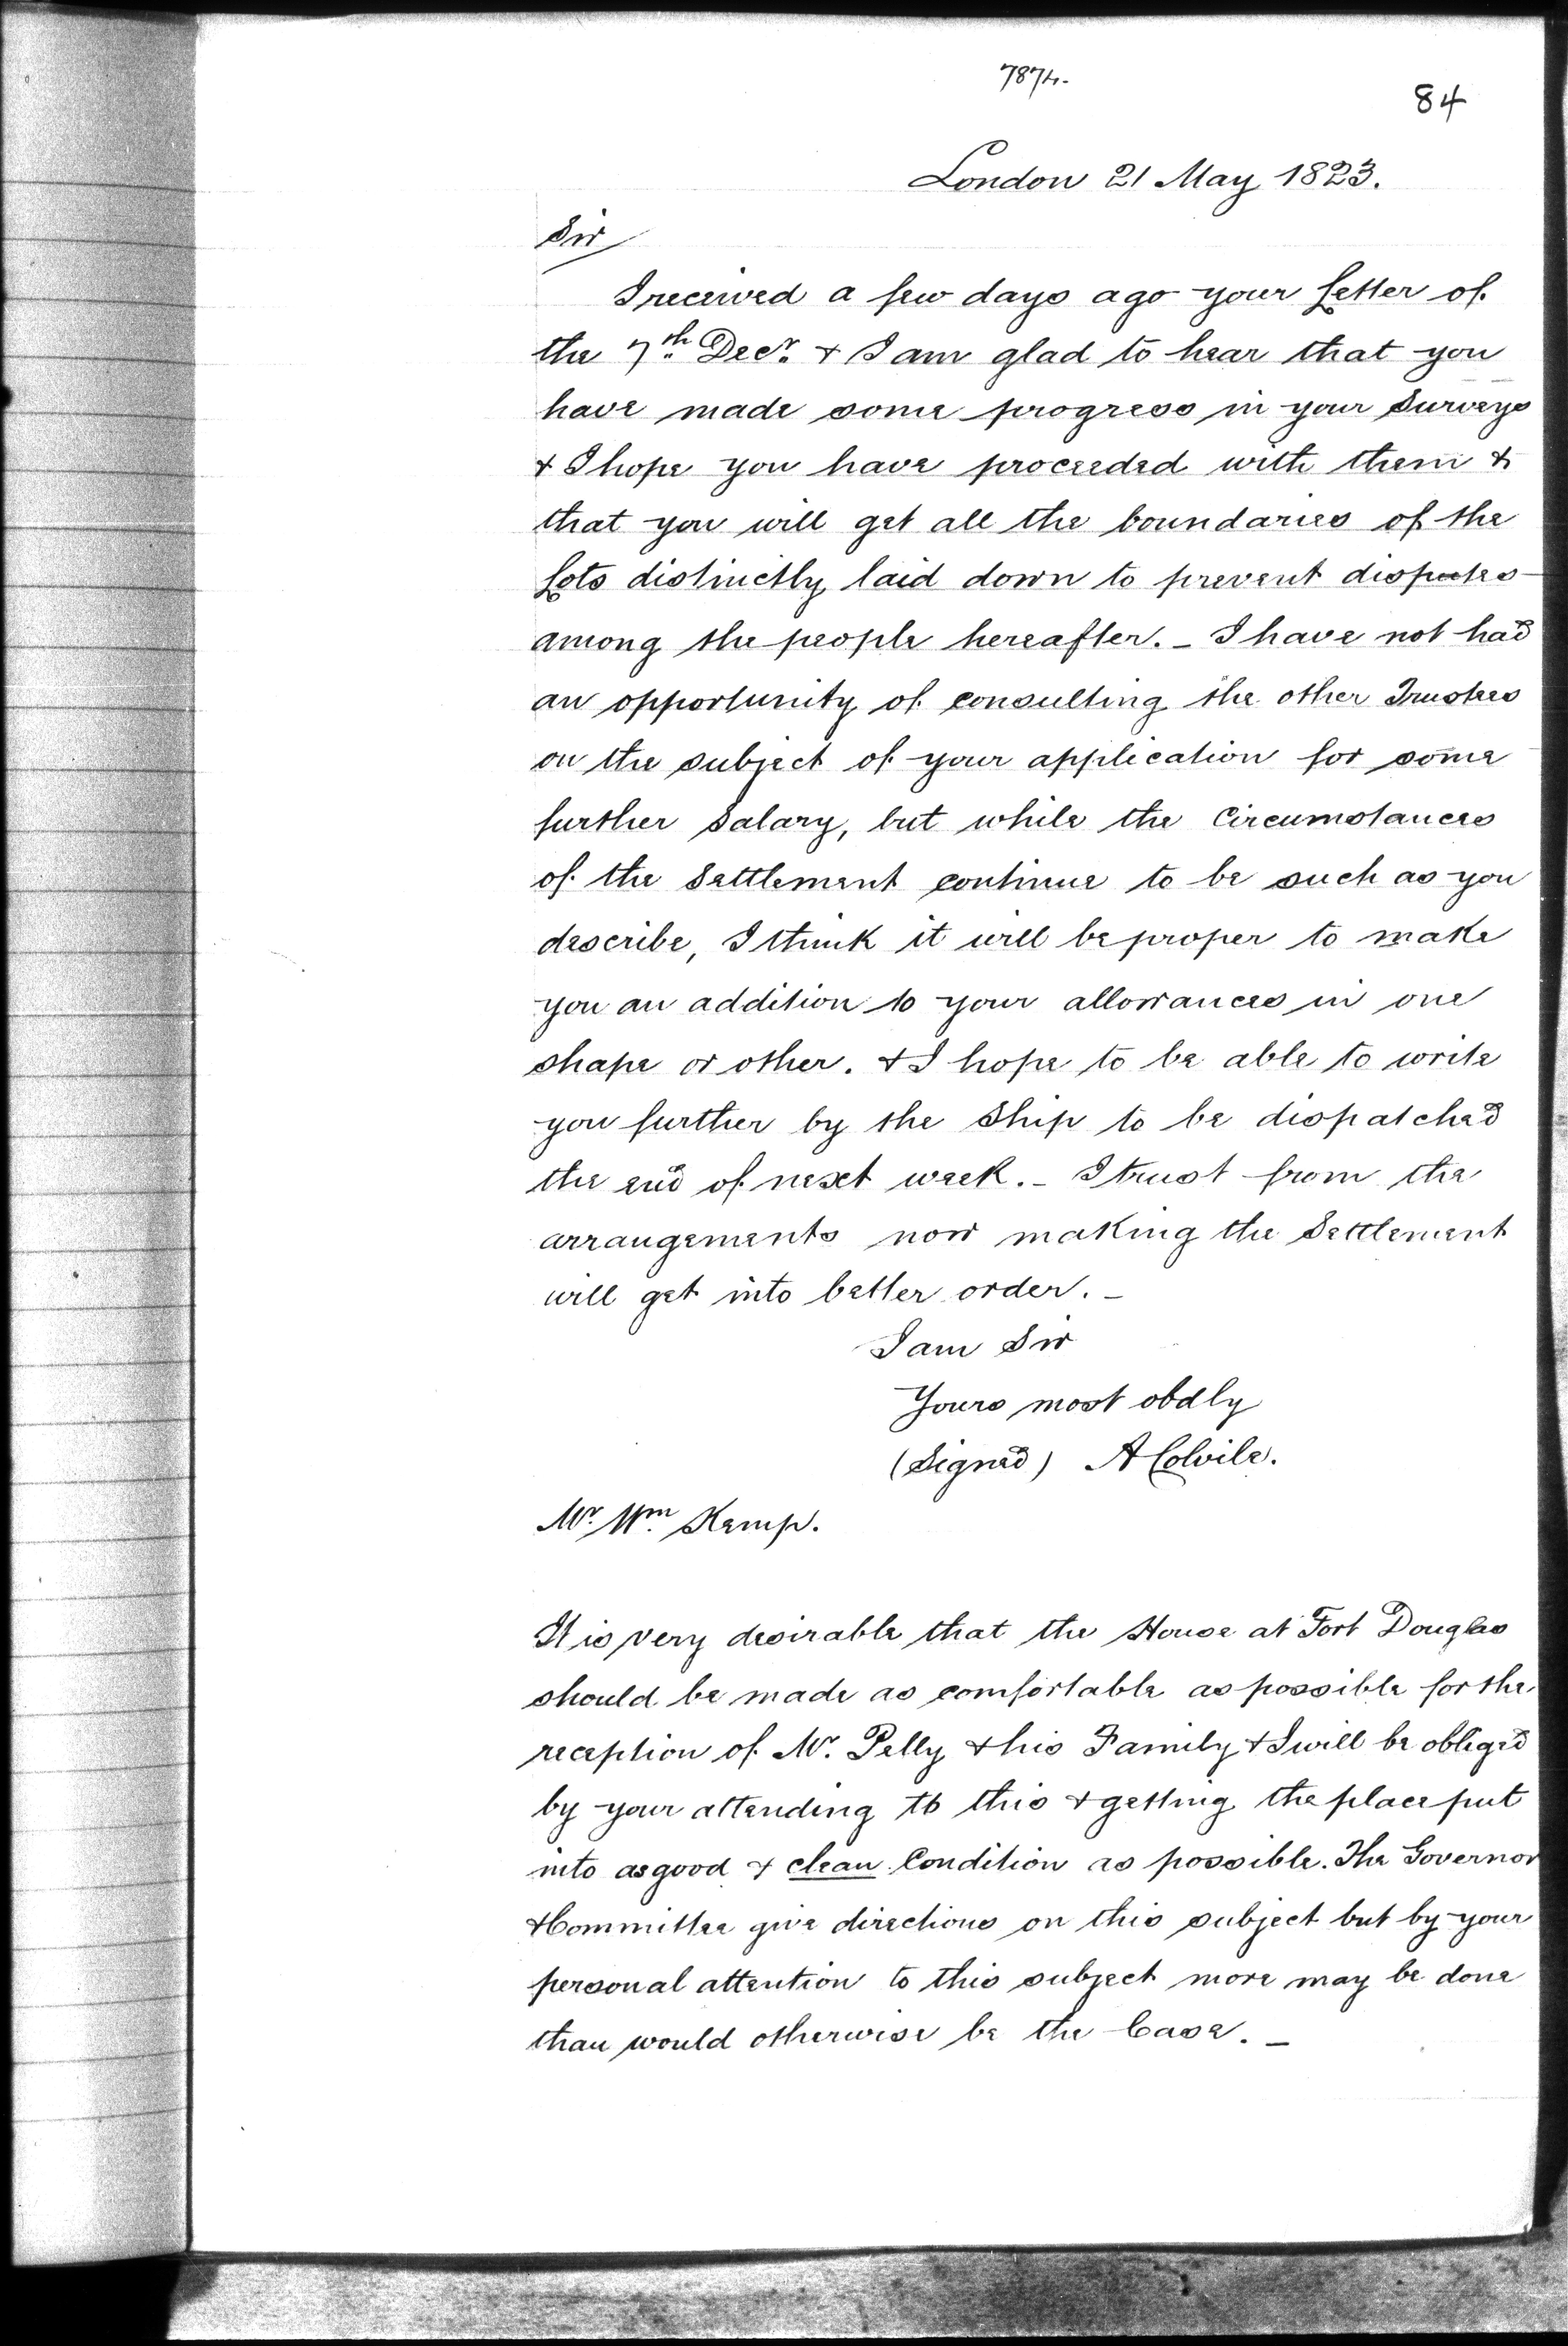 7874.
84
London 21 May 1823.
Sir
I received a few days ago your Letter of
the 7th Decr. & I am glad to hear that you
have made some progress in your Surveys
& I hope you have proceeded with them &
that you will get all the boundaries of the
Lots distinctly laid down to prevent disputes
among the people hereafter. _ I have not had
an opportunity of consulting the other Trustees
on the subject of your application for some
further Salary, but while the Circumstances
of the Settlement continue to be such as you
describe, I think it will be proper to make
you an addition to your allowances in one
shape or other. & I hope to be able to write
you further by the Ship to be dispatched
the end of next week. _ I trust from the
arrangements now making the Settlement
will get into better order. _
I am Sir
Yours most obdly
(Signed) A Colvile.
Mr. Wm. Kemp.
It is very desirable that the House at Fort Douglas
should be made as comfortable as possible for the
reception of Mr. Pelly & his Family & I will be obliged
by your attending to this & getting the place put
into as good & clean Condition as possible. The Governor
& Committee give directions on this subject but by your
personal attention to this subject more may be done
than would otherwise be the Case. _